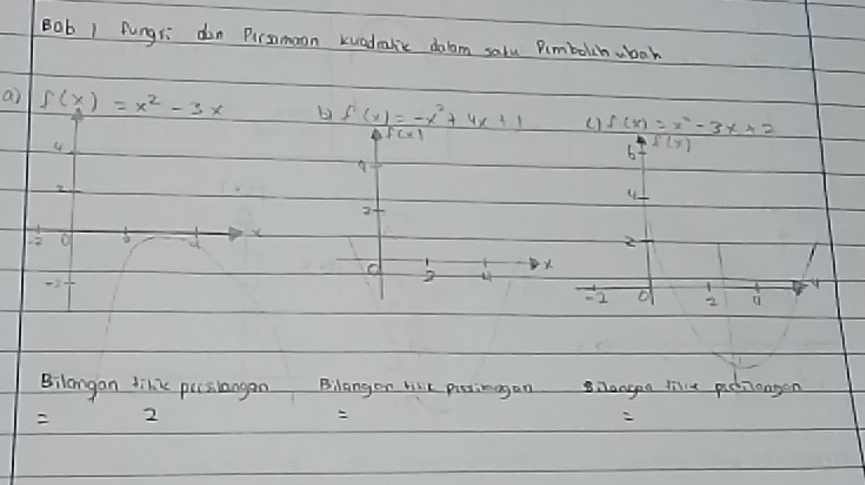 Bab 1 fungsi dan Persamaan kuadratik dalam satu Pemboleh ubah
a) f(x) = x² - 3x b) f(x) = -x² + 4x + 1 c) f(x) = x² - 3x + 2
f(x) f(x)
4 4 6
2 2 4
2
-2 0 2 4 x 0 2 4 x -2 0 2 4
-2
Bilangan titik persilangan Bilangan titik persilangan Bilangan titik persilangan
= 2 = =